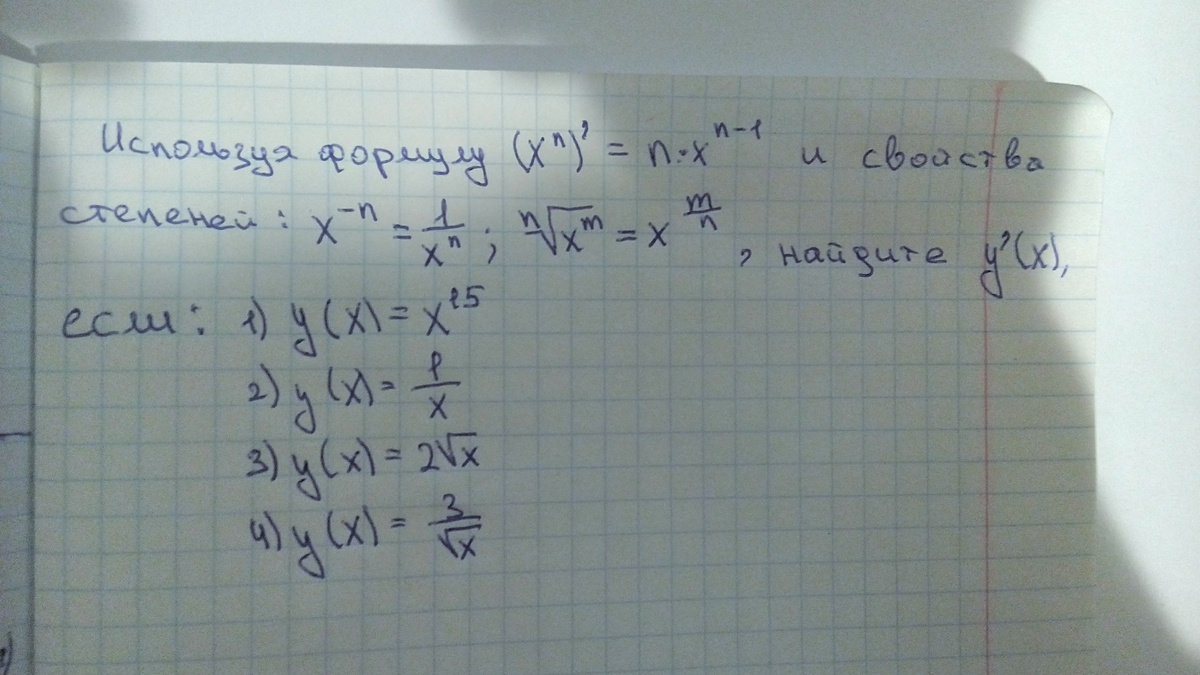 Используя формулу (xⁿ)' = n·xⁿ⁻¹ и свойства
степеней: x⁻ⁿ = 1/xⁿ ; ⁿ√(xᵐ) = x^(m/n) , найдите y'(x),
если: 1) y(x) = x¹⁵
2) y(x) = 1/x
3) y(x) = 2√x
4) y(x) = 3/√x